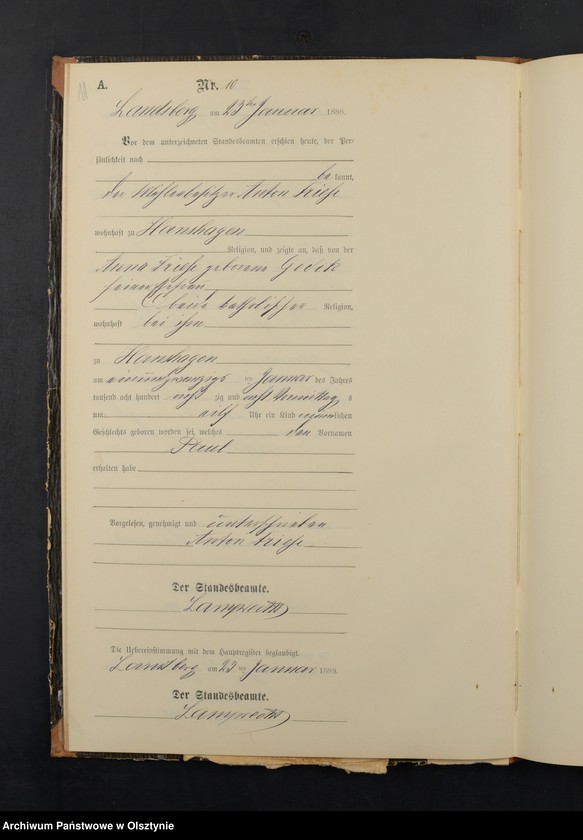 A. Nr. 10
Landsberg am 23ten Januar 1888.
Vor dem unterzeichneten Standesbeamten erschien heute, der Per-
sönlichkeit nach
be kannt,
der Mühlenbesitzer Anton Kriese
wohnhaft zu Hanshagen
Religion, und zeigte an, daß von der
Anna Kriese geborene
seiner Ehefrau
beide katholischer Religion,
wohnhaft bei ihm
zu Hanshagen
am einundzwanzigsten Januar des Jahres
tausend acht hundert acht zig und acht Vormittags
um elf Uhr ein Kind männlichen
Geschlechts geboren worden sei, welches den Vornamen
Paul
erhalten habe
Vorgelesen, genehmigt und unterschrieben
Anton Kriese
Der Standesbeamte.
Lamprecht
Die Uebereinstimmung mit dem Hauptregister beglaubigt.
Landsberg am 23 ten Januar 1888.
Der Standesbeamte.
Lamprecht
Archiwum Państwowe w Olsztynie